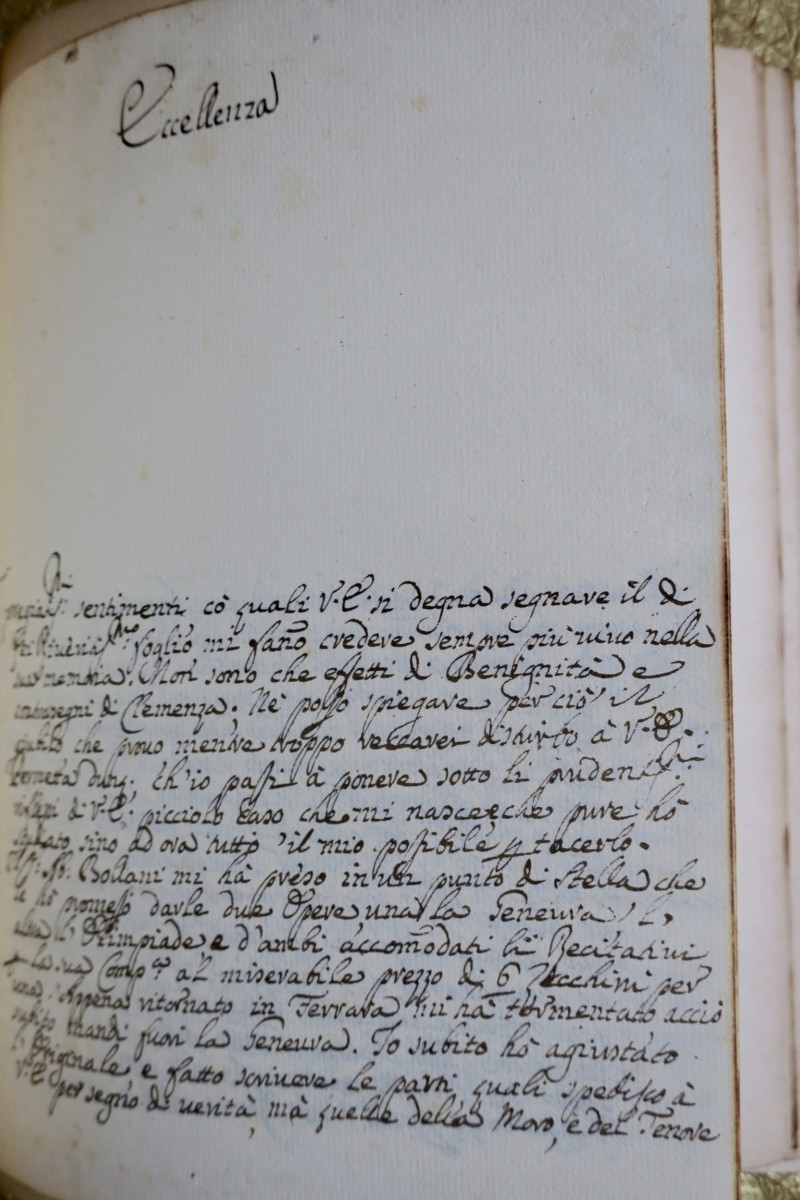 Eccellenza
Gli
sentimenti cõ quali V. E. si degna segnare il di
foglio mi fano credere sempre più vivo nella
Non sono che effetti di Benignità e
di Clemenza; Nè posso spiegare per ciò il
che provo mentre troppo recarei disturbo à V. E.
ch'io passi à ponere sotto li prudent.mi
di V. E. picciolo caso che mi nasce, e che pure hò
sino ad ora tutto il mio possibile p tacerlo.
Bollani mi hà preso in un punto di Stella che
hò promesso darle due Opere, una la Geneura, l'
Olimpiade, e d'ambi accomodati li Recitativi
la sua Comp.a al miserabile prezzo di 6 Zecchini per
Appena ritornato in Ferrara mi hà tormentato acciò
mandi fuori la Geneura. Io subito hò agiustato
Originale, e fatto scrivere le parti, quali spedisco à
V. E. per segno di verità, mà quelle della Moro, e del Tenore